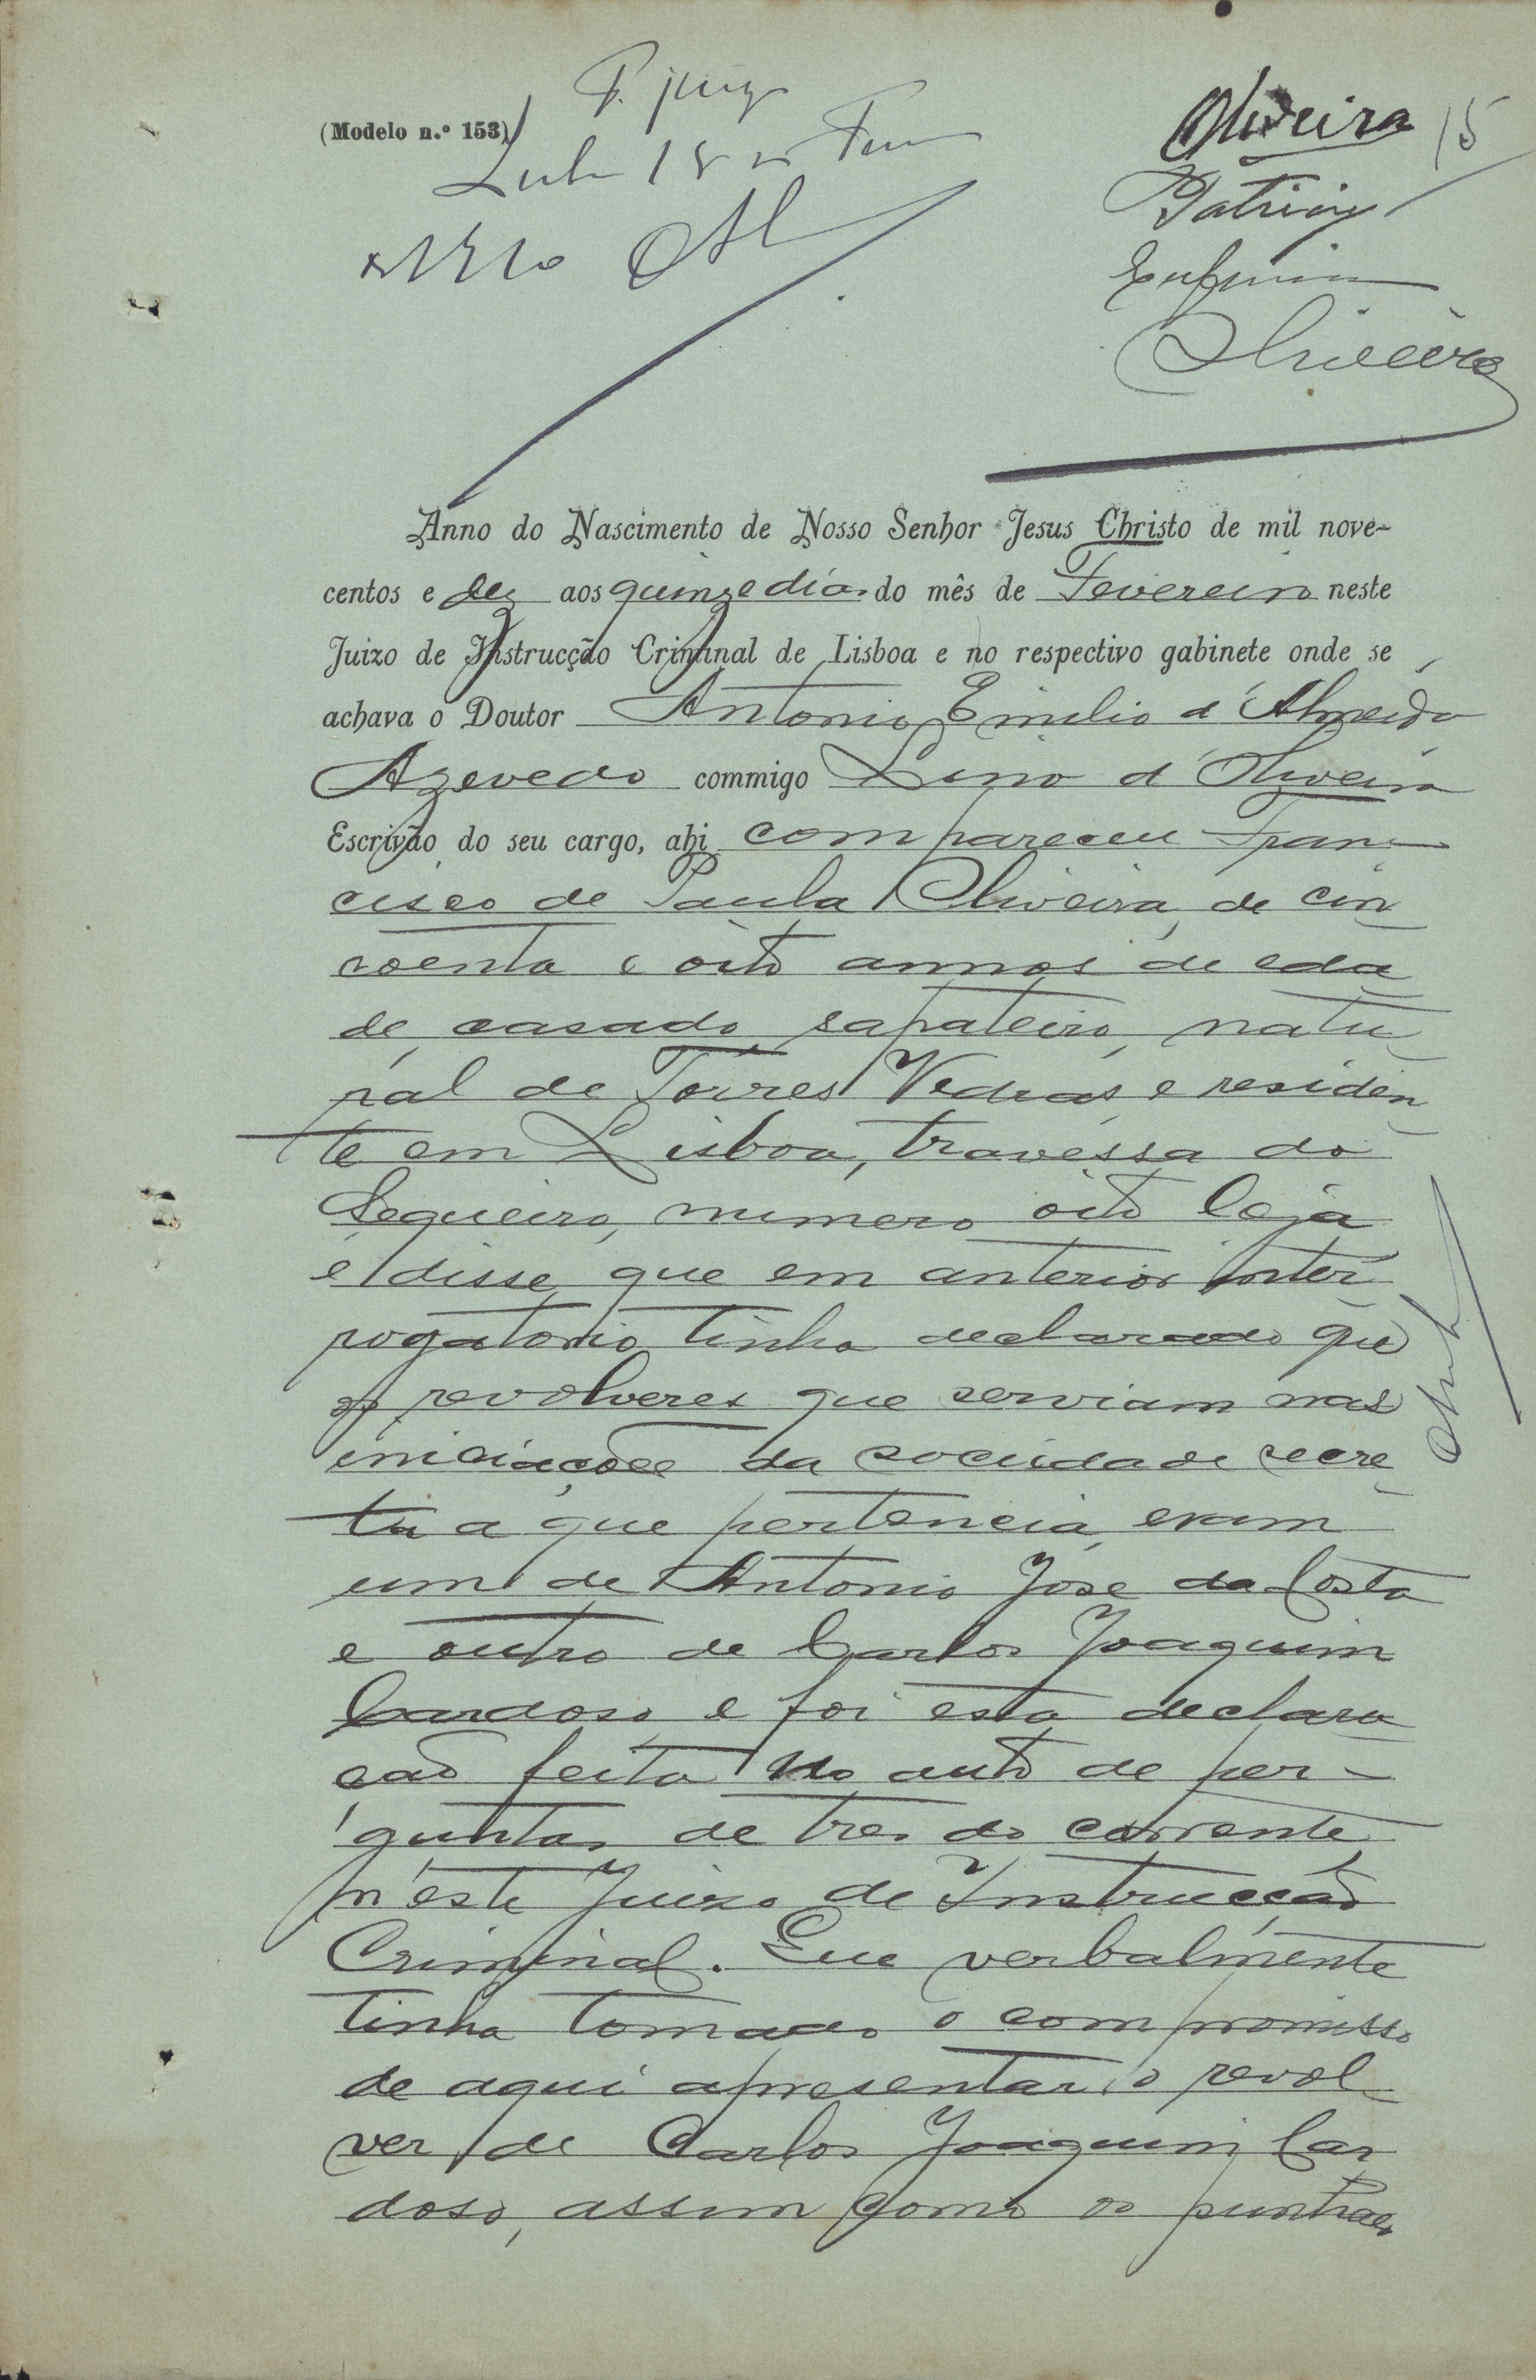 (Modelo n.º 153)
Oliveira 15
Patricio
Oliveira
Anno do Nascimento de Nosso Senhor Jesus Christo de mil nove-
centos e dez aos quinze dias do mês de Fevereiro neste
Juizo de Instrucção Criminal de Lisboa e no respectivo gabinete onde se
achava o Doutor Antonio Emilio d'Almeida
Azevedo commigo Lino d'Oliveira
Escrivão do seu cargo, ahi compareceu Fran-
cisco de Paula Oliveira, de cin
coenta e oito annos de eda
de, casado, sapateiro, natu
ral de Torres Vedras e residen
te em Lisboa, travessa do
Sequeiro, numero oito loja
e disse que em anterior inter
rogatorio tinha declarado que
os revolveres que serviam nas
iniciações da sociedade secre
ta a que pertencia, eram
um de Antonio José da Costa
e outro de Carlos Joaquim
Cardoso e foi esta declara
ção feita no auto de per-
guntas de tres do corrente
n'este Juizo de Instrucção
Criminal. Que verbalmente
tinha tomado o compromisso
de aqui apresentar o revol
ver de Carlos Joaquim Car
doso, assim como os punhaes